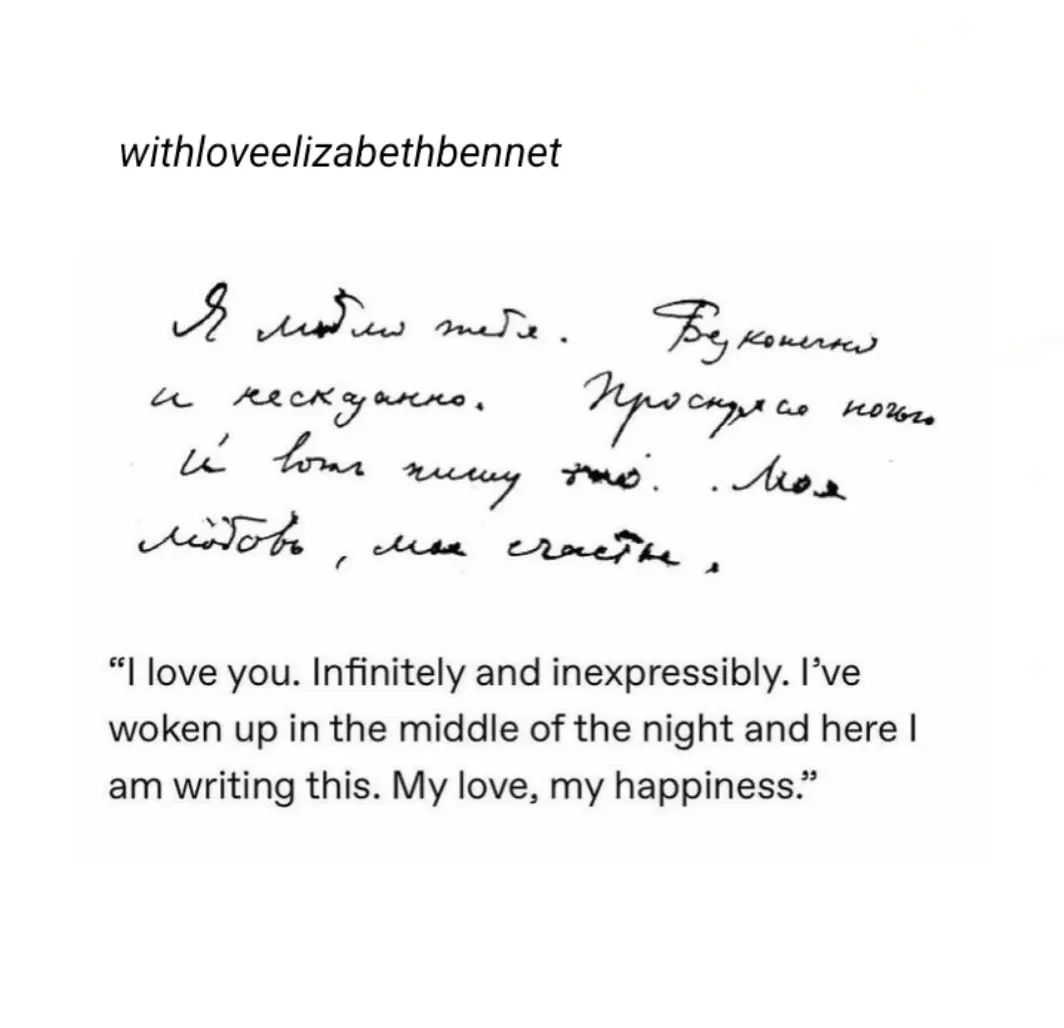 withloveelizabethbennet
Я люблю тебя. Безконечно
и несказанно. Проснулся ночью
и вотъ пишу это. Моя
любовь, мое счастье.
“I love you. Infinitely and inexpressibly. I’ve
woken up in the middle of the night and here I
am writing this. My love, my happiness.”